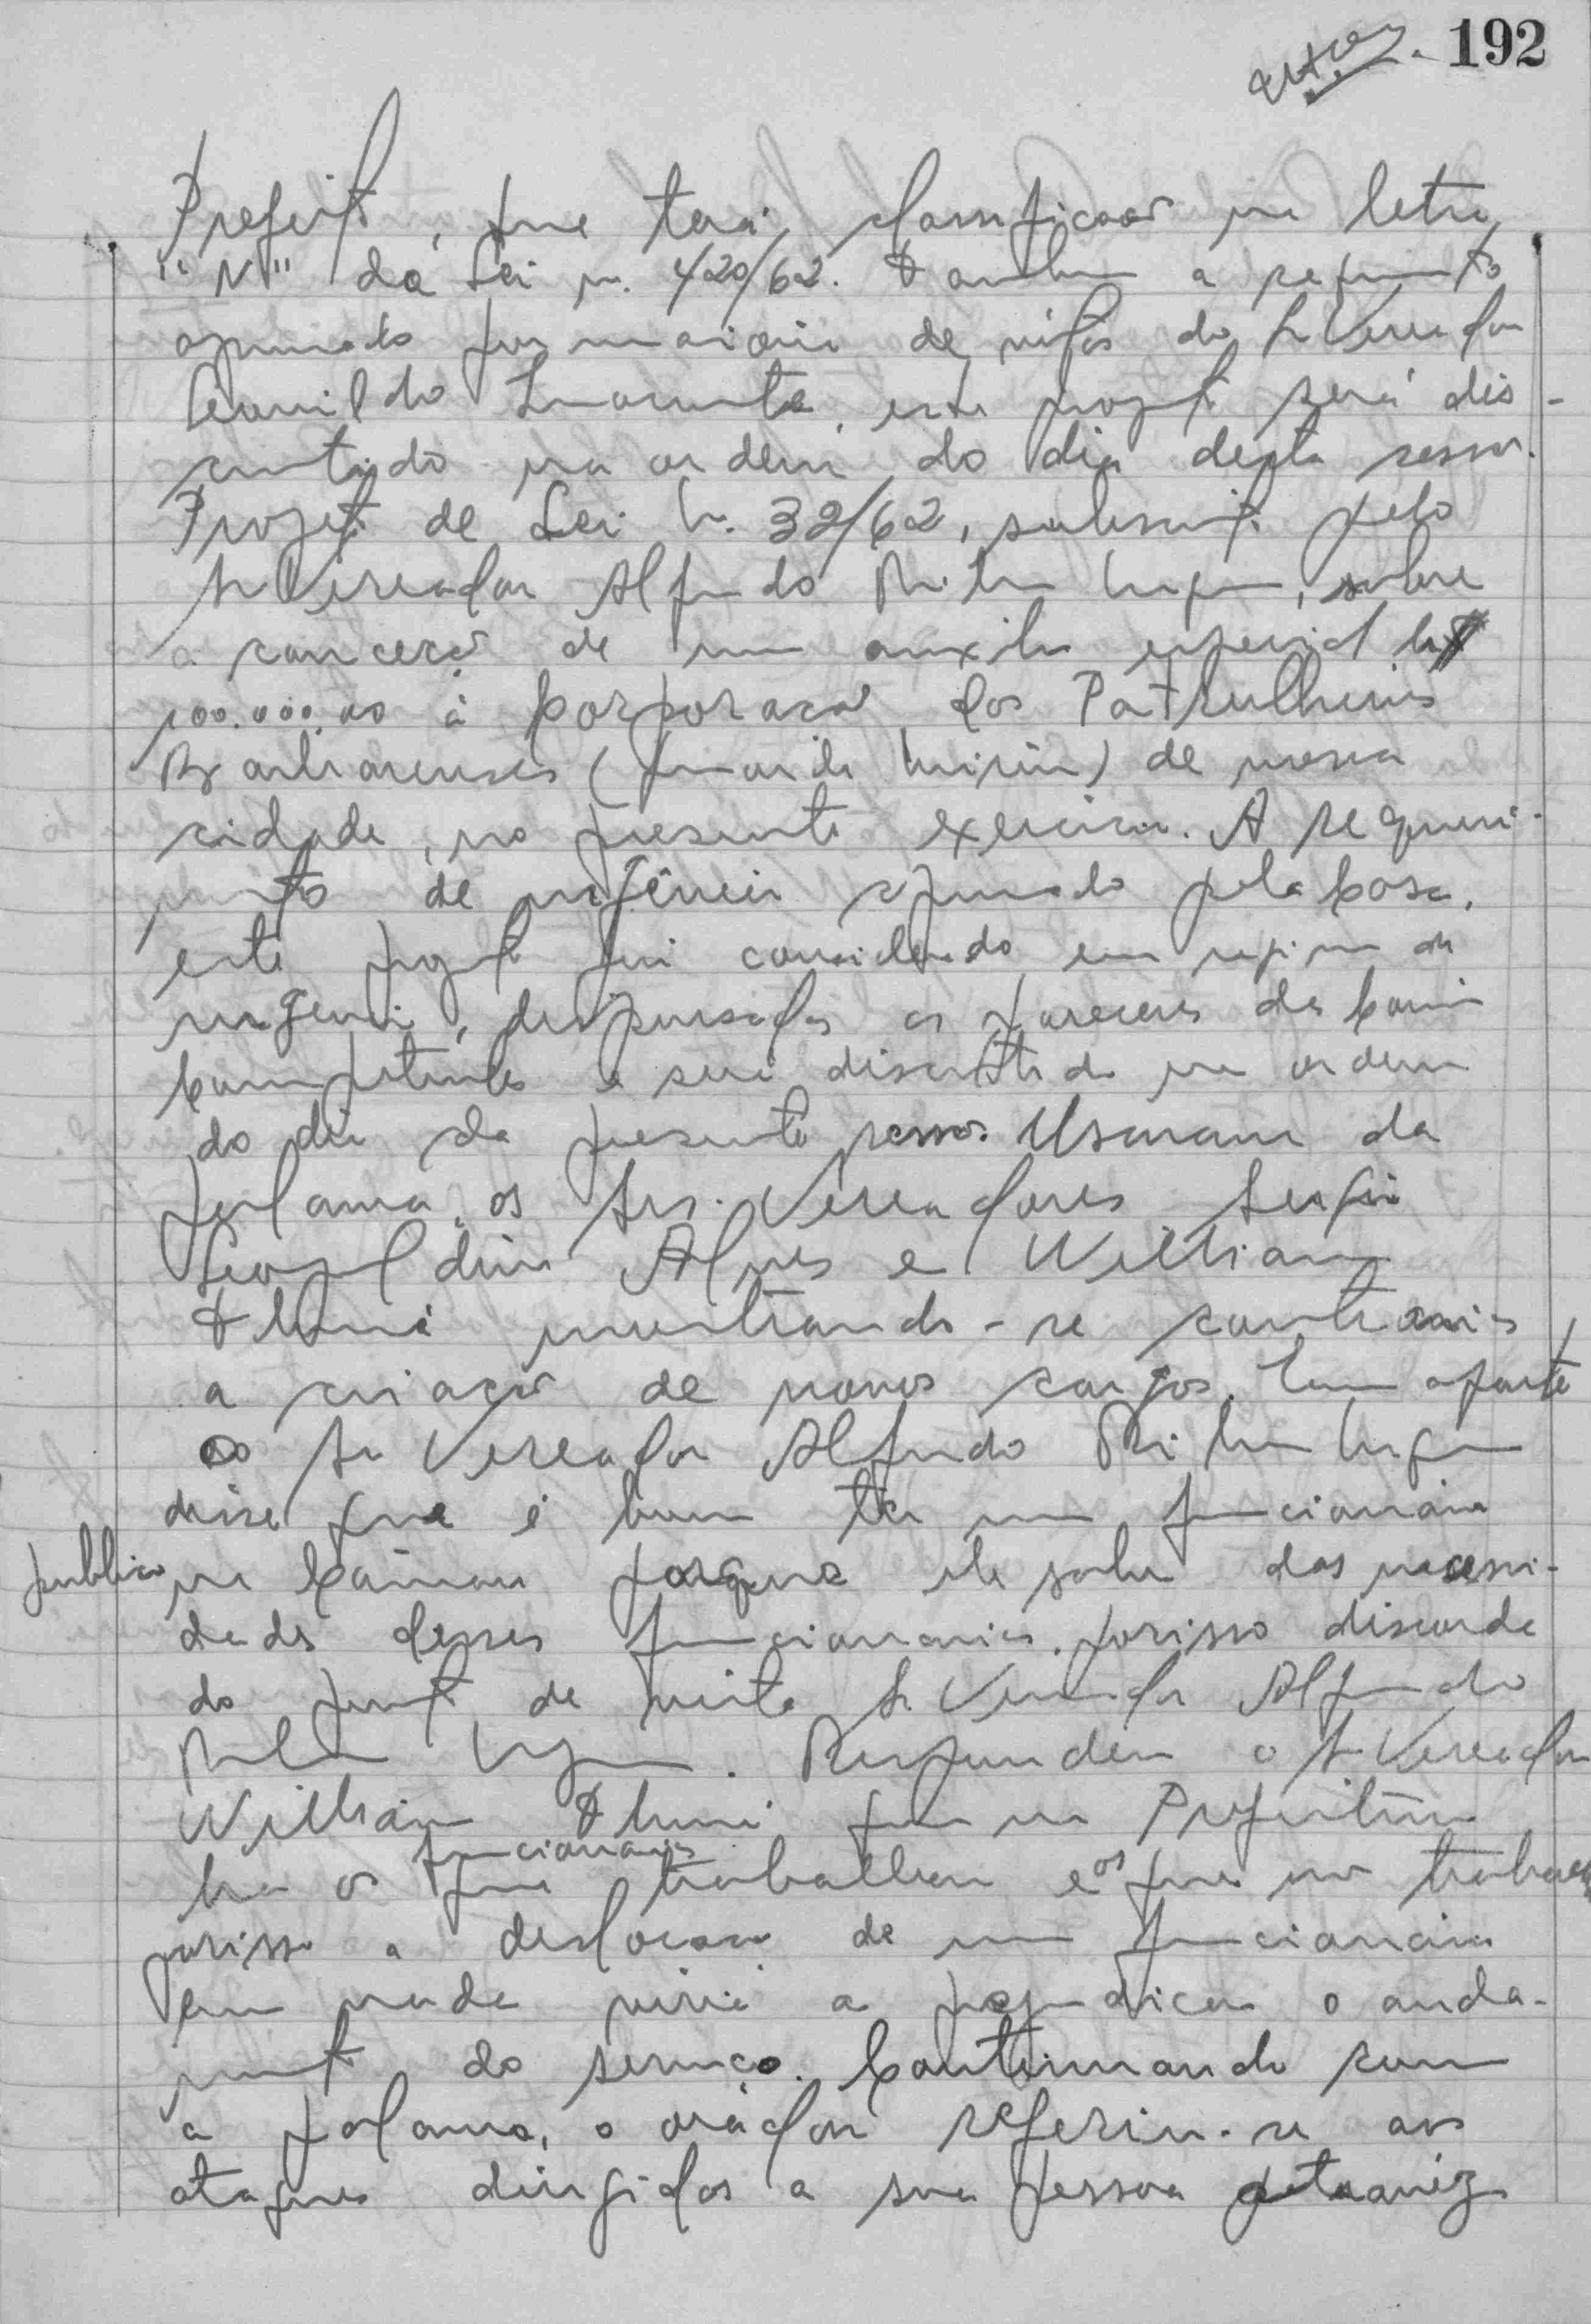 192
Prefeito, que terá classificação na letra
"N" da Lei n. 420/62. Tambem a requerimento
aprovado por maioria de do Sr Vereador
este projeto será dis-
cutido na ordem do dia desta sessão.
Projeto de Lei n. 32/62, subscrito pelo
Sr Vereador Alfredo sobre
a concessão de um auxilio especial
100.000,00 à Corporação dos Patrulheiros
Barbarenses (Guarda Mirim) de nossa
cidade, no presente exercicio. A requeri-
mento de urgência aprovado pela Casa,
este projeto foi considerado em regime de
urgencia, dispensados os pareceres das
Competentes e será discutido na ordem
do dia da presente sessão. Usaram da
palavra, os Srs. Vereadores Sergio
Leopoldino Alves e William
mostrando-se contrarios
a criação de novos cargos. Em aparte
o Sr Vereador Alfredo
disse que é bom ter um funcionário
publico na Câmara porque ele sabe das necessi-
dades desses funcionarios. porisso discorda
do ponto de vista Sr Vereador Alfredo
Respondeu o Sr Vereador
William que na Prefeitura
funcionarios
ha os que trabalham e os que não trabalham
porisso a deslocação de um funcionário
em nada viria a prejudicar o anda-
mento do serviço. Continuando com
a palavra, o orador referiu-se aos
ataques dirigidos a sua pessoa